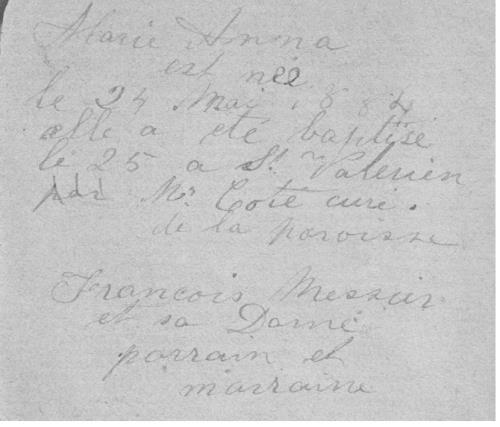 Marie Anna
est née
le 24 Mai 1884
elle a eté baptisé
le 25 a St Valerien
par Mr Coté curé.
de la paroisse
Francois Messier
et sa Dame
parrain et
marraine